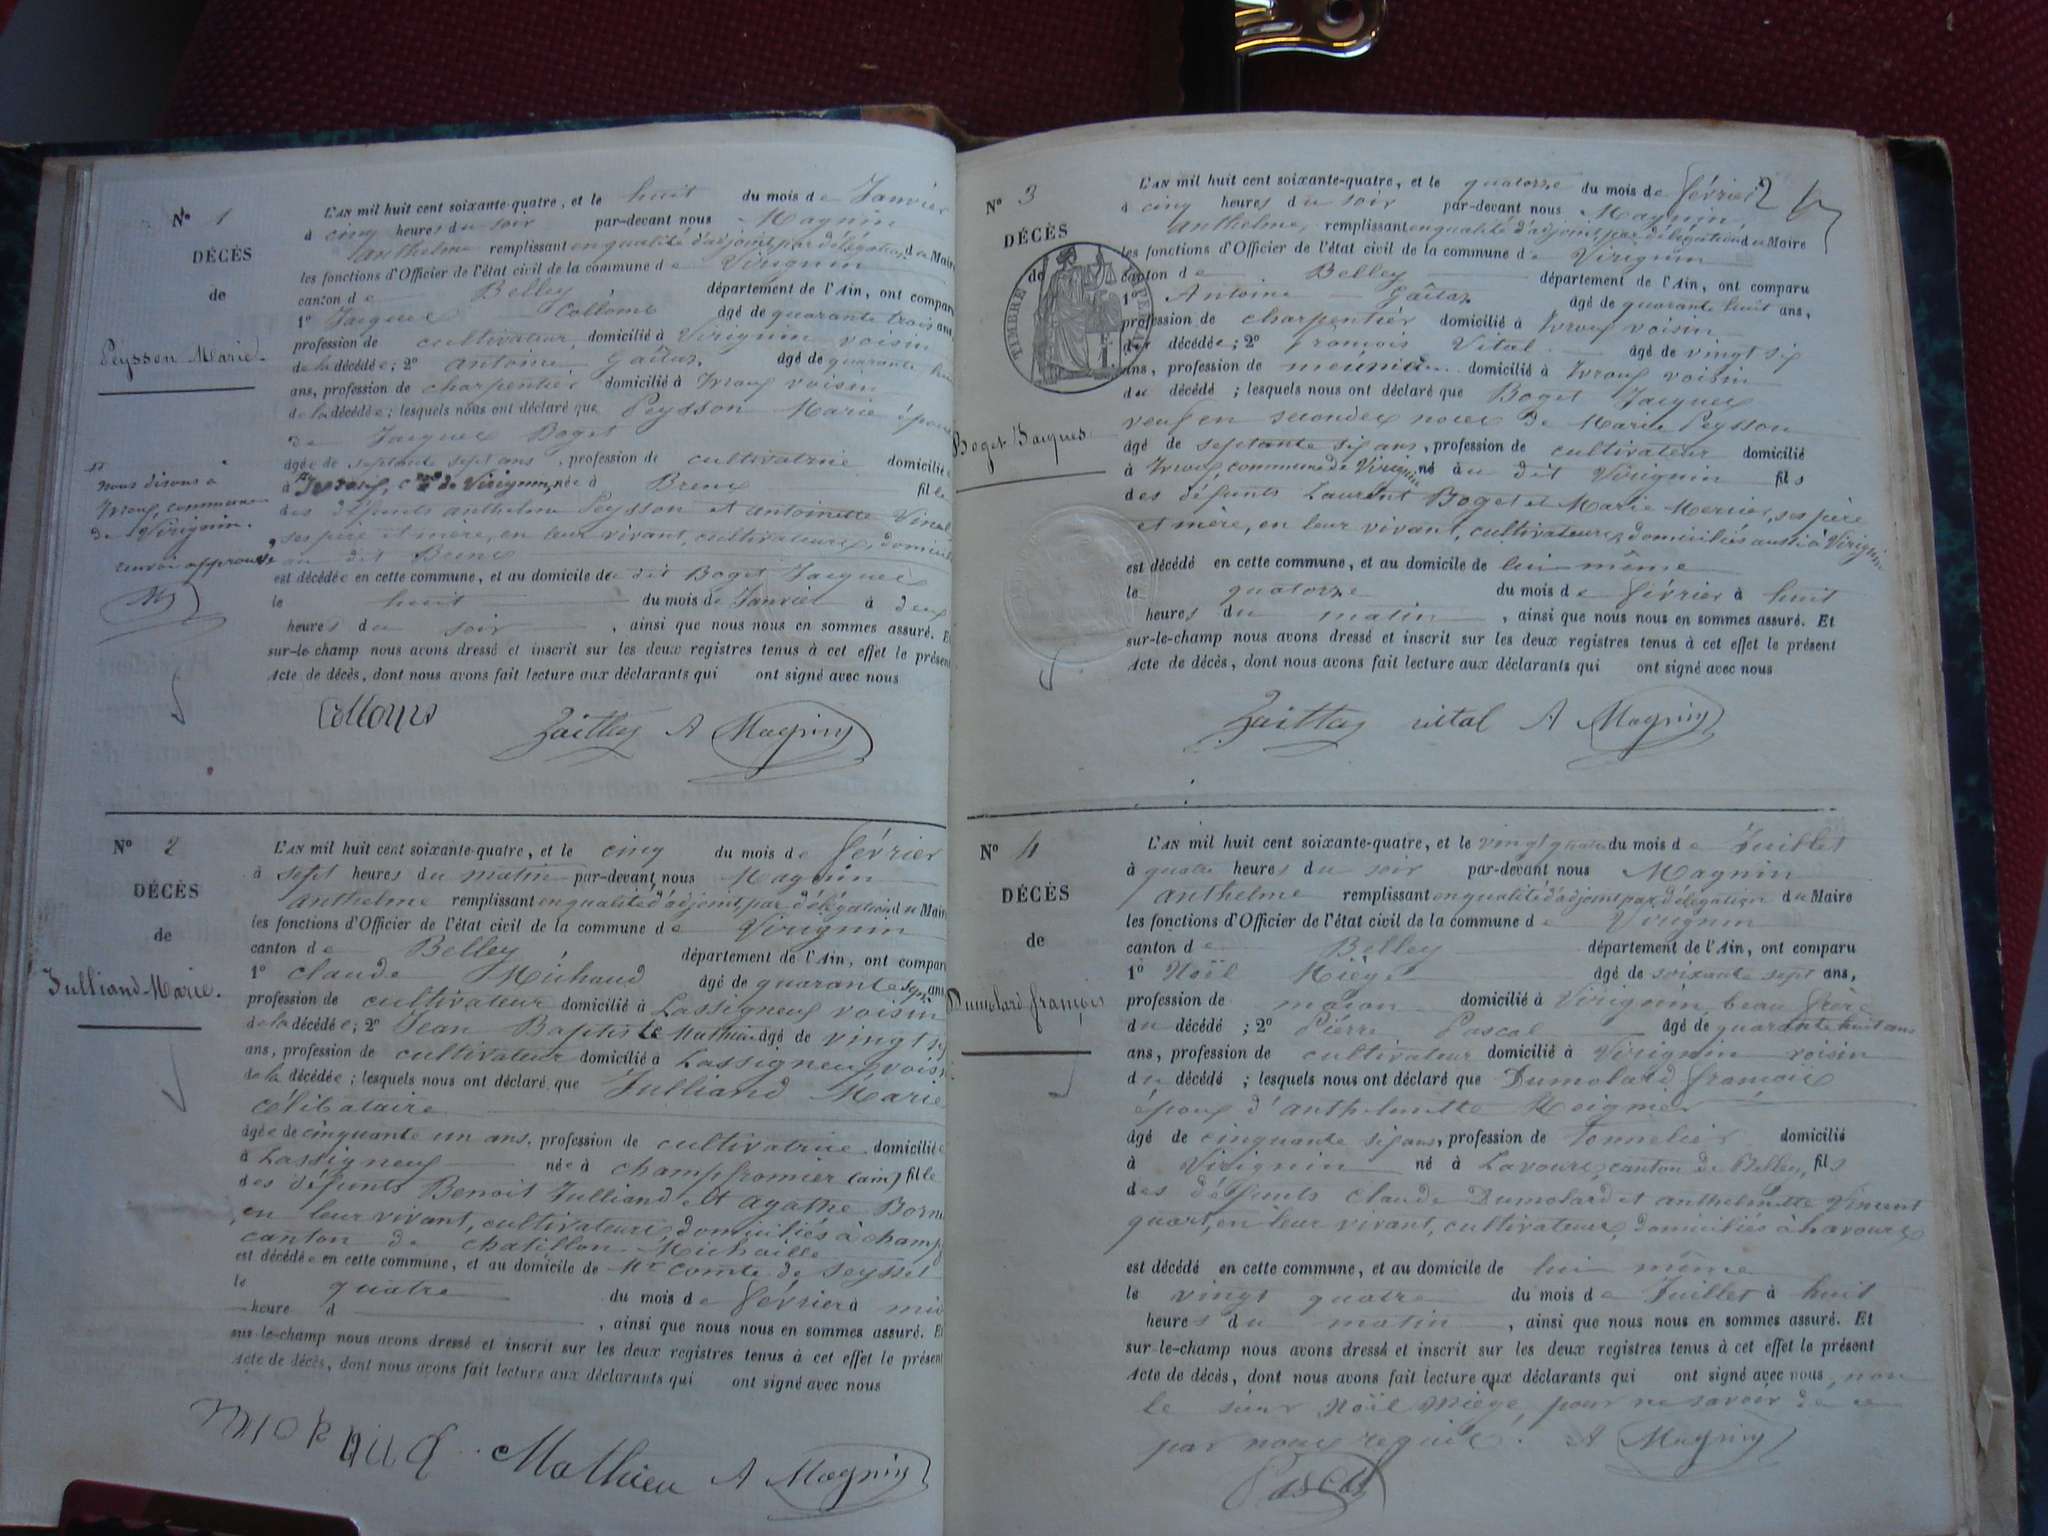 N° 1
DÉCÈS
de
Peysson Marie
nous disons à
Vroux, commune
de Virignin.
renvoi approuvé
L'AN mil huit cent soixante-quatre, et le huit du mois de Janvier
à cinq heures du soir par-devant nous Magnin
anthelme remplissant en qualité d'adjoint, par délégation du Maire
les fonctions d'Officier de l'état civil de la commune de Virignin
canton de Belley département de l'Ain, ont comparu
1° Jacques Collomb âgé de quarante trois ans
profession de cultivateur domicilié à Virignin voisin
de la décédée ; 2° antoine Gaîtaz âgé de quarante
ans, profession de charpentier domicilié à Vroux voisin
de la décédée ; lesquels nous ont déclaré que Peysson Marie
de Jacques Boget
âgée de septante sept ans, profession de cultivatrice domicilié
à de Virignin, née à Brens fille
des défunts anthelme Peysson et antoinette
ses père et mère, en leur vivant, cultivateurs,
au dit Brens
est décédée en cette commune, et au domicile du dit Boget Jacques
le huit du mois de Janvier à deux
heures du soir, ainsi que nous nous en sommes assuré. Et
sur-le-champ nous avons dressé et inscrit sur les deux registres tenus à cet effet le présent
Acte de décès, dont nous avons fait lecture aux déclarants qui ont signé avec nous
Collomb Gaittaz A Magnin
N° 2
DÉCÈS
de
Julliand Marie.
L'AN mil huit cent soixante-quatre, et le cinq du mois de février
à sept heures du matin par-devant nous Magnin
anthelme remplissant en qualité d'adjoint, par délégation du Maire
les fonctions d'Officier de l'état civil de la commune de Virignin
canton de Belley département de l'Ain, ont comparu
1° claude Michaud âgé de quarante sept ans
profession de cultivateur domicilié à Lassigneux voisin
de la décédée ; 2° Jean Baptiste Mathieu âgé de vingt
ans, profession de cultivateur domicilié à Lassigneux, voisin
de la décédée ; lesquels nous ont déclaré que Julliand Marie
célibataire
âgée de cinquante un ans, profession de cultivatrice domicilié
à Lassigneux née à champfromier (ain) fille
des défunts Benoit Julliand et agathe
en leur vivant, cultivateurs, domiciliés à champ
canton de chatillon Michaille
est décédée en cette commune, et au domicile de Mr comte de Seyssel
le quatre du mois de février à
heure d , ainsi que nous nous en sommes assuré. Et
sur-le-champ nous avons dressé et inscrit sur les deux registres tenus à cet effet le présent
Acte de décès, dont nous avons fait lecture aux déclarants qui ont signé avec nous
Mathieu A Magnin
2
N° 3
DÉCÈS
de
TIMBRE IMPERIAL
Boget Jacques
L'AN mil huit cent soixante-quatre, et le quatorze du mois de février
à cinq heures du soir par-devant nous Magnin
anthelme, remplissant en qualité d'adjoint, par délégation du Maire
les fonctions d'Officier de l'état civil de la commune de Virignin
canton de Belley département de l'Ain, ont comparu
1° Antoine Gaîtaz âgé de quarante huit ans,
profession de charpentier domicilié à Vroux voisin
du décédé ; 2° François Vital âgé de vingt six
ans, profession de meunier domicilié à Vroux voisin
du décédé ; lesquels nous ont déclaré que Boget Jacques
veuf en secondes noces de Marie Peysson
âgé de septante six ans, profession de cultivateur domicilié
à Vroux commune de Virignin né à au dit Virignin fils
des défunts Laurent Boget et Marie Mercier, ses père
et mère, en leur vivant, cultivateurs, domiciliés aussi à Virignin
est décédé en cette commune, et au domicile de lui même
le quatorze du mois de février à huit
heures du matin, ainsi que nous nous en sommes assuré. Et
sur-le-champ nous avons dressé et inscrit sur les deux registres tenus à cet effet le présent
Acte de décès, dont nous avons fait lecture aux déclarants qui ont signé avec nous
Gaittaz vital A Magnin
N° 4
DÉCÈS
de
Dumolard françois
L'AN mil huit cent soixante-quatre, et le vingt quatre du mois de Juillet
à quatre heures du soir par-devant nous Magnin
anthelme remplissant en qualité d'adjoint, par délégation du Maire
les fonctions d'Officier de l'état civil de la commune de Virignin
canton de Belley département de l'Ain, ont comparu
1° Noël Miège âgé de soixante sept ans,
profession de maçon domicilié à Virignin, beau frère
du décédé ; 2° Pierre Pascal âgé de quarante huit ans
ans, profession de cultivateur domicilié à Virignin voisin
du décédé ; lesquels nous ont déclaré que Dumolard françois
époux d'anthelmette
âgé de cinquante six ans, profession de tonnelier domicilié
à Virignin né à Lavours, canton de Belley, fils
des défunts claude Dumolard et anthelmette Vincent
quart, en leur vivant, cultivateurs, domiciliés à Lavours
est décédé en cette commune, et au domicile de lui même
le vingt quatre du mois de Juillet à huit
heures du matin, ainsi que nous nous en sommes assuré. Et
sur-le-champ nous avons dressé et inscrit sur les deux registres tenus à cet effet le présent
Acte de décès, dont nous avons fait lecture aux déclarants qui ont signé avec nous, non
le sieur Noël Miège, pour ne savoir de ce
par nous requis. A Magnin
Pascal